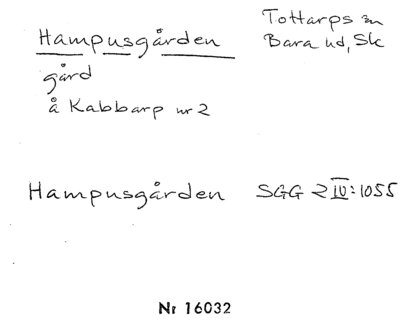 Hampusgården
Tottarps sn
Bara hd, Sk
gård
å Kabbarp nr 2
Hampusgården SGG 2 IV:1055
Nr 16032